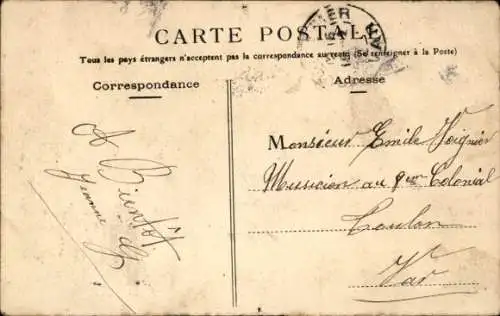 CARTE POSTALE
Tous les pays étrangers n'acceptent pas la correspondance au recto (Se renseigner à la Poste)
Correspondance
Adresse
A Bientôt
Jeanne
Monsieur Emile Voignier
Musicien au 4eme Colonial
Toulon
Var